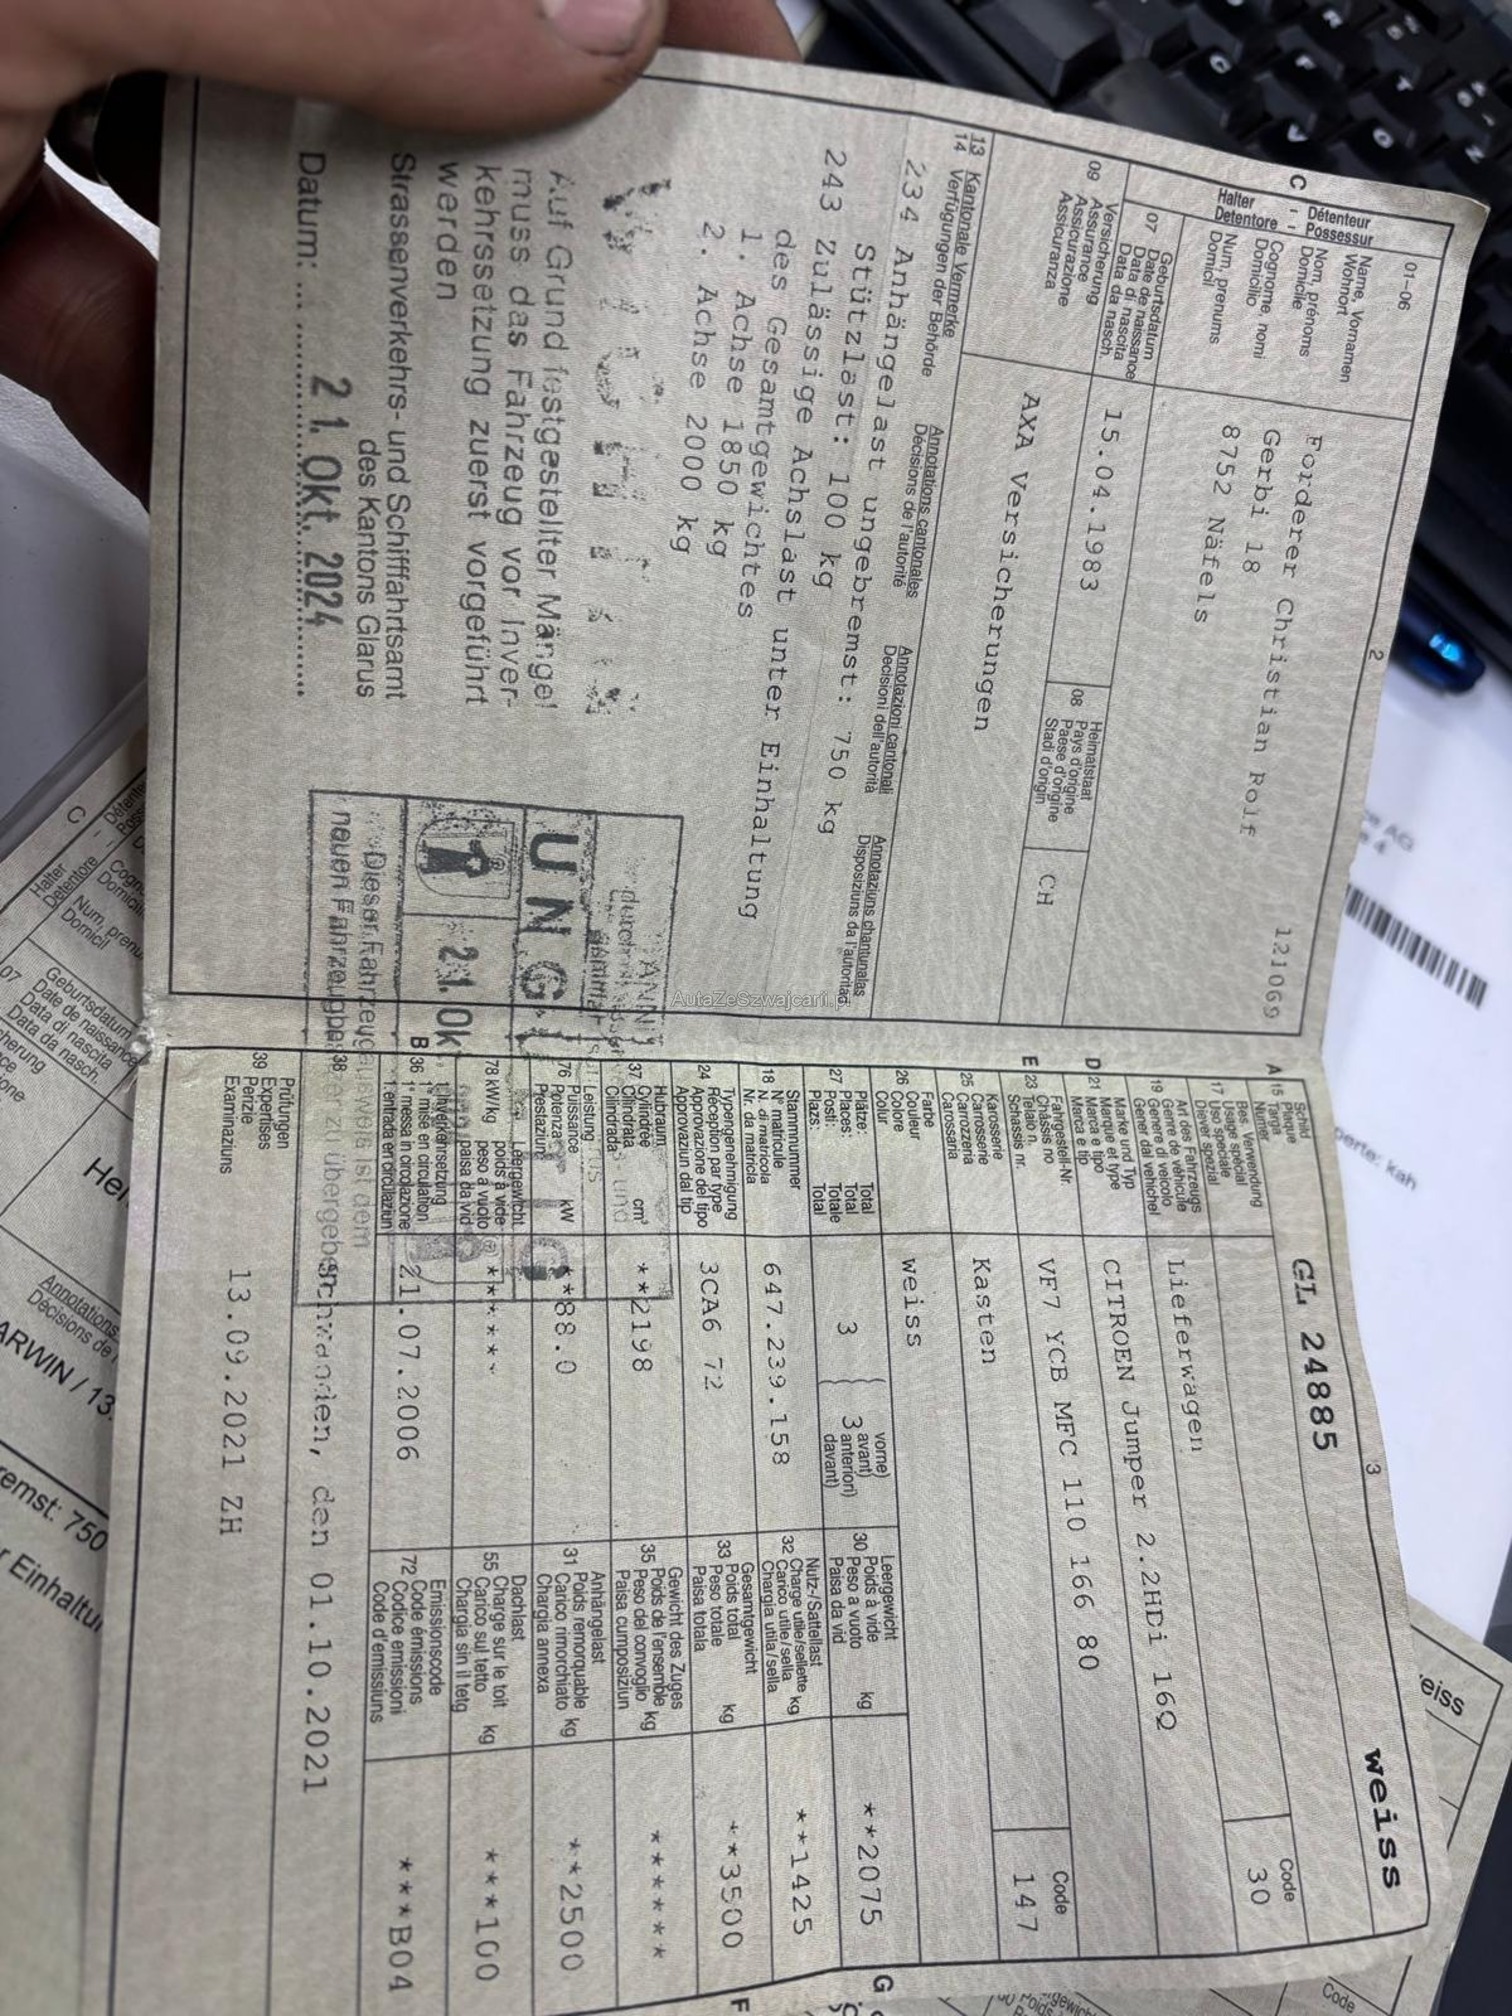 01-06
2
C - Détenteur - Possessur
Halter Detentore
Name, Vornamen
Wohnort
Nom, prénoms
Domicile
Cognome, nomi
Domicilio
Num, prenums
Domicil
Forderer Christian Rolf
121069
Gerbi 18
8752 Näfels
07 Geburtsdatum
Date de naissance
Data di nascita
Data da nasch.
15.04.1983
08 Heimatstaat
Pays d'origine
Paese d'origine
Stadi d'origin
CH
09 Versicherung
Assurance
Assicurazione
Assicuranza
AXA Versicherungen
13 Kantonale Vermerke
14 Verfügungen der Behörde
Annotations cantonales
Décisions de l'autorité
Annotazioni cantonali
Decisioni dell'autorità
Annotaziuns chantunalas
Disposiziuns da l'autoritad
234 Anhängelast ungebremst: 750 kg
Stützlast: 100 kg
243 Zulässige Achslast unter Einhaltung
des Gesamtgewichtes
1. Achse 1850 kg
2. Achse 2000 kg
Auf Grund festgestellter Mängel
muss das Fahrzeug vor Inver-
kehrssetzung zuerst vorgeführt
werden
Strassenverkehrs- und Schifffahrtsamt
des Kantons Glarus
Datum: 21. Okt. 2024
ANN
UNG
21. Ok
Dieser Fahrzeugausweis ist dem
neuen Fahrzeug zu übergeben
AutaZeSzwajcarii.p
3
weiss
A 15 Schild
Plaque
Targa
Numer
GL 24885
17 Bes. Verwendung
Usage spécial
Uso speciale
Diever spezial
19 Art des Fahrzeugs
Genre de véhicule
Genere di veicolo
Gener dal vehichel
Lieferwagen
Code
30
D 21 Marke und Typ
Marque et type
Marca e tipo
Marca e tip
CITROEN Jumper 2.2HDi 16Q
E 23 Fahrgestell-Nr.
Châssis no
Telaio n.
Schassis nr.
VF7 YCB MFC 110 166 80
25 Karosserie
Carrosserie
Carrozzeria
Carossaria
Kasten
Code
147
26 Farbe
Couleur
Colore
Colur
weiss
27 Plätze: Total
Places: Total
Posti: Totale
Plazs: Total
3
3
vorne)
avant)
anteriori)
davant)
30 Leergewicht
Poids à vide
Peso a vuoto
Paisa da vid
kg
**2075
G
18 Stammnummer
N° matricule
N. di matricola
Nr. da matricla
647.239.158
32 Nutz-/Sattellast
Charge utile/sellette kg
Carico utile/sella
Chargia utila/sella
**1425
24 Typengenehmigung
Réception par type
Approvazione del tipo
Approvaziun dal tip
3CA6 72
33 Gesamtgewicht
Poids total
Peso totale
Paisa totala
kg
**3500
F
37 Hubraum
Cylindrée
Cilindrata
Cilindrada
cm³
**2198
35 Gewicht des Zuges
Poids de l'ensemble kg
Peso del convoglio
Paisa cumposiziun
******
76 Leistung
Puissance
Potenza
Prestaziun
kW
**88.0
31 Anhängelast
Poids remorquable
Carico rimorchiato kg
Chargia annexa
**2500
78 kW/kg
Leergewicht
poids à vide
peso a vuoto
paisa da vid
55 Dachlast
Charge sur le toit
Carico sul tetto
Chargia sin il tetg
kg
***100
B 36 1. Inverkehrsetzung
1re mise en circulation
1a messa in circolazione
1. entrada en circulaziun
21.07.2006
72 Emissionscode
Code émissions
Codice emissioni
Code d'emissiuns
***B04
38
Schwanden, den 01.10.2021
39 Prüfungen
Expertises
Perizie
Examinaziuns
13.09.2021 ZH
C
Halter
Detentore
Num, prenu
Domicil
07 Geburtsdatum
Date de naissance
Data di nascita
Data da nasch.
Annotations
Décisions de l
ARWIN / 13.
emst: 750
r Einhaltu
e AG
perte: kah
eiss
Code